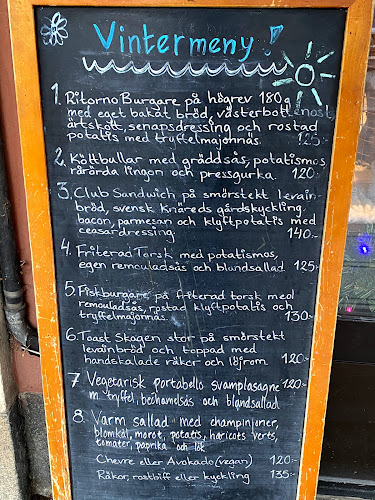 Vintermeny!
1. Ritorno Burgare på högrev 180g
med eget bakat bröd, västerbottenost,
ärtskott, senapsdressing och rostad
potatis med tryffelmajonnäs. 125:-
2. Köttbullar med gräddsås, potatismos
rårörda lingon och pressgurka. 120:-
3. Club Sandwich på smörstekt levain-
bröd, svensk Knäreds gårdskyckling,
bacon, parmesan och klyftpotatis med
ceasardressing. 140:-
4. Friterad Torsk med potatismos,
egen remouladsås och blandsallad. 125:-
5. Fiskburgare, på friterad torsk med
remouladsås, rostad klyftpotatis och
tryffelmajonnäs. 130:-
6. Toast Skagen stor på smörstekt
levainbröd och toppad med
handskalade räkor och löjrom. 120:-
7 Vegetarisk portabello svamplasagne 120:-
m. tryffel, bechamelsås och blandsallad
8. Varm sallad med champinjoner,
blomkål, morot, potatis, haricots verts,
tomater, paprika och lök
Chevre eller Avokado (vegan) 120:-
Räkor, rostbiff eller kyckling 135:-